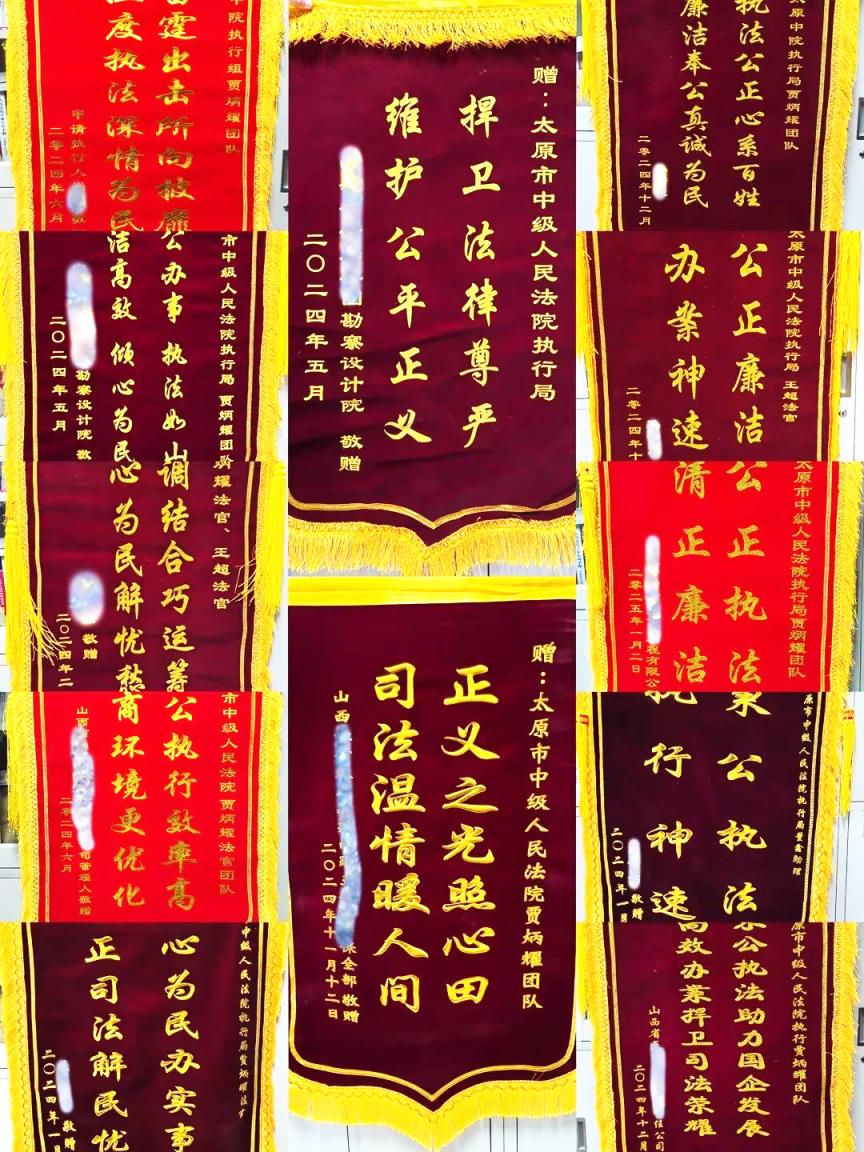 中院执行组贾炳耀团队
雷霆出击所向披靡
力度执法深情为民
申请执行人
敬
二零二四年六月
赠：太原市中级人民法院执行局
捍卫法律尊严
维护公平正义
勘察设计院 敬赠
二〇二四年五月
太原中院执行局贾炳耀团队
执法公正心系百姓
廉洁奉公真诚为民
二零二四年十二月
市中级人民法院执行局 贾炳耀团队
公办事 执法如山
洁高效 倾心为民
勘察设计院 敬
二〇二四年五月
太原市中级人民法院执行局 王超法官
公正廉洁
办案神速
二零二四年十
炳耀法官、王超法官
调结合巧运筹
心为民解忧愁
敬赠
二〇二四年二
太原市中级人民法院执行局贾炳耀团队
公正执法
清正廉洁
程有限公
二零二五年一月二日
市中级人民法院 贾炳耀法官团队
公执行效率高
商环境更优化
山西
司管理人敬赠
二零二四年六月
赠：太原市中级人民法院贾炳耀团队
正义之光照心田
司法温情暖人间
山西
保全部敬赠
二〇二四年十一月十二日
原市中级人民法院执行局董鑫助理
秉公执法
执行神速
敬赠
二〇二四年一月
中级人民法院执行局贾炳耀法官
心为民办实事
正司法解民忧
敬赠
二〇二四年一月
原市中级人民法院执行贾炳耀团队
秉公执法助力国企发展
高效办案捍卫司法荣耀
山西省
任公司
二〇二四年十二月